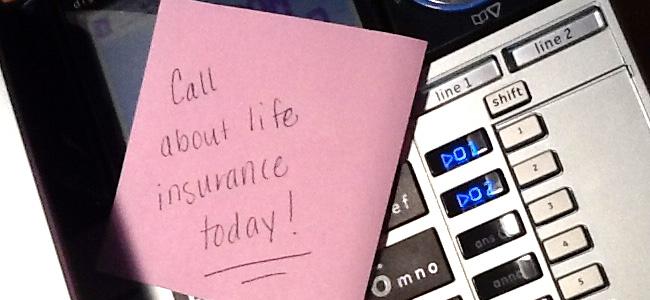 Call
about life
insurance
today!
line 1
line 2
shift
1
2
3
4
5
01
02
ans
ann
ef
mno